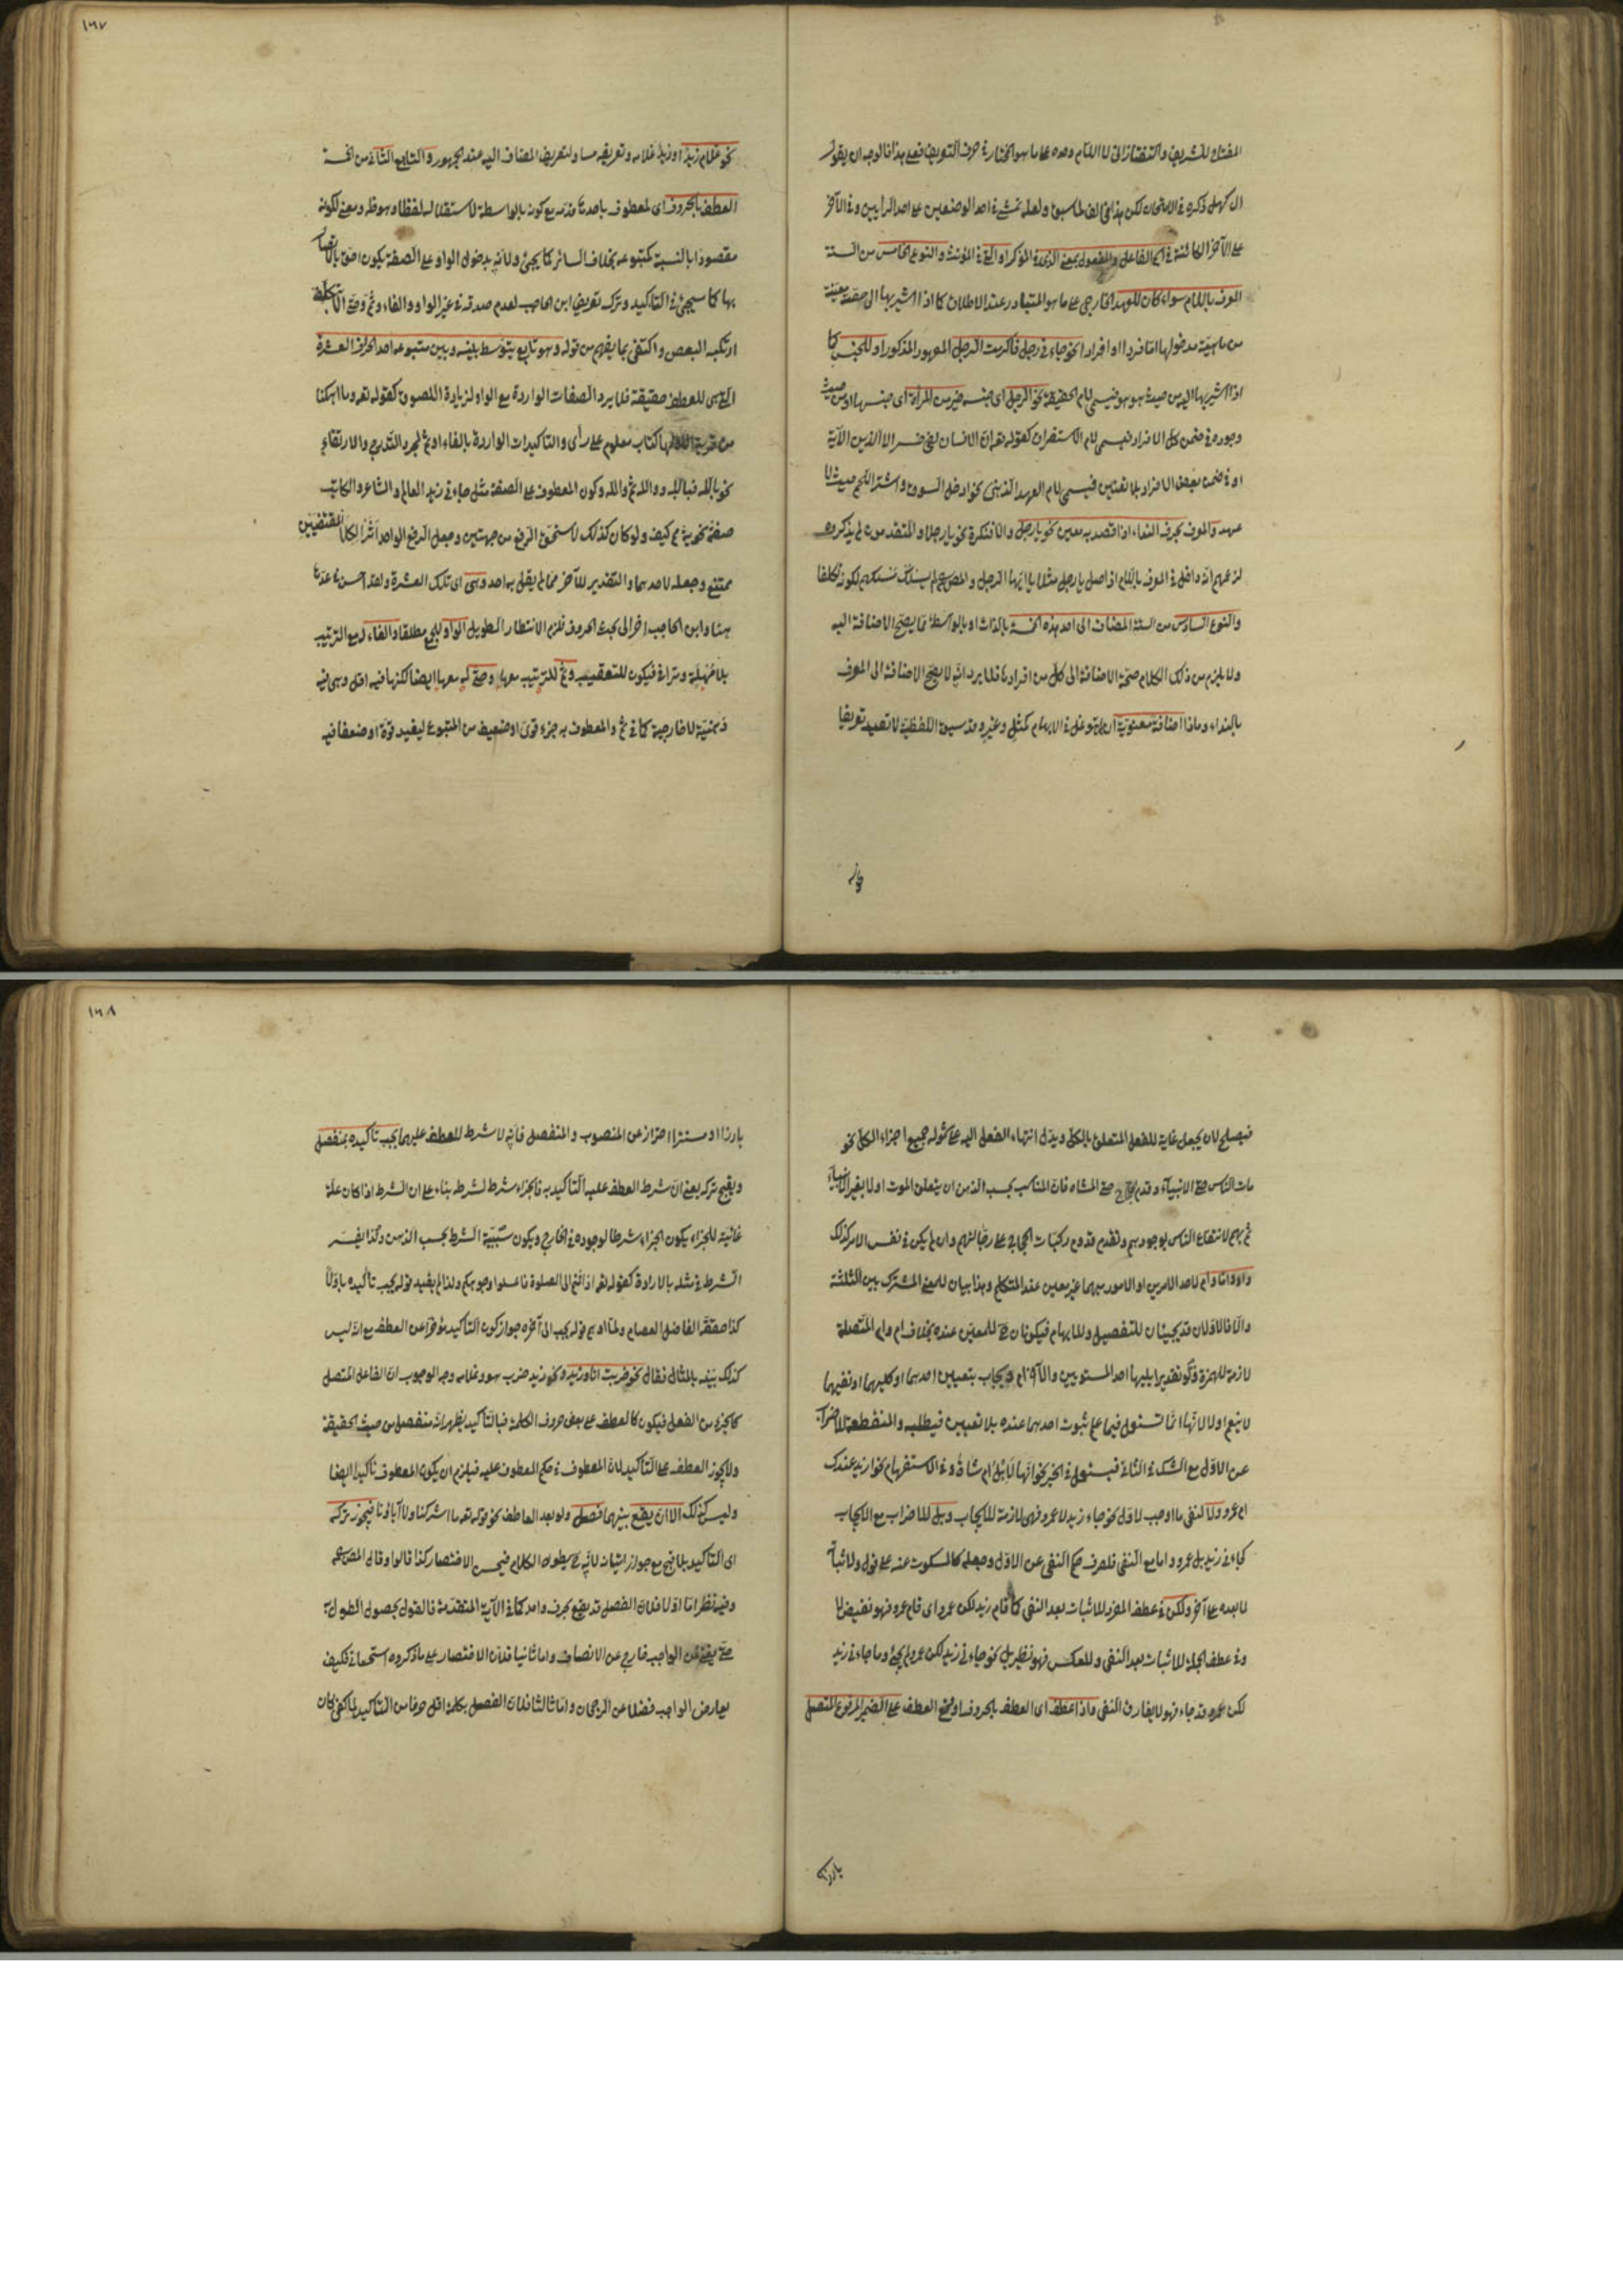 ١٦٧
المفتاح للشريف والتفتازانى لا اللام وحده على ما هو المختار فى حرف التعريف فعلى هذا فالوجه ان يقول
ال كهل ذكره فى الامتحان لكن هذا مخالف لما سبق ولعله تمشى فى احد الوضعين على احد الرأيين وفى الآخر
على الآخر الكائنة فى اسم الفاعل والمفعول بمعنى الذى فى المذكر او التى فى المؤنث والنوع الخامس من الستة
المعرف باللام سواء كان للعهد الخارجى على ما هو المتبادر عند الاطلاق كما اذا اشير بها الى حصة معينة
من ماهية مدخولها اما فردا او افرادا نحو جاءنى رجل فاكرمت الرجل المعهود المذكور او للجنس كما
اذا اشير بها اليه من حيث هو هو فيسمى لام الحقيقة نحو الرجل اى جنسه خير من المرأة اى جنسها او من حيث
وجوده فى ضمن كل الافراد فيسمى لام الاستغراق كقوله تع ان الانسان لفى خسر الا الذين الآية
او فى ضمن بعض الافراد بلا تعيين فيسمى لام العهد الذهنى نحو ادخل السوق واشتر اللحم حيث لا
عهد والمعرف بحرف النداء اذا قصد به معين نحو يا رجل والا فنكرة نحو يا رجلا والمتقدمون لم يذكروه
لزعمهم انه داخل فى المعرف باللام اذ اصل يا رجل مثلا يا ايها الرجل والمص لم يسلك مسلكهم لكونه تكلفا
والنوع السادس من الستة المضاف الى احد هذه الخمسة بالذات او بالواسطة مما يصح الاضافة اليه
ولا يلزم من ذلك الكلام صحة الاضافة الى كل من افرادها فلا يرد انه لا يصح الاضافة الى المعرف
بالنداء وماذا اضافة معنوية ان لم يتوغل فى الابهام كمثل وغيره وقد سبق اللفظية لا تفيد تعريفا
نحو غلام زيد او زيد غلامه وتعريفه مساو لتعريف المضاف اليه عند الجمهور والتابع الثانى من الخمسة
العطف بالحروف اى المعطوف باحدها قدمه مع كونه بالواسطة لاستقلاله لفظا وهو ظ ومعنى لكونه
مقصودا بالنسبة كمتبوعه بخلاف السائر كما يجئ ولانه بدخول الواو على الصفة يكون احق بالاتصال
بها كما سيجئ فى التاكيد وترك تعريف ابن الحاجب لعدم صدقه فى غير الواو والفاء وثم وحتى الا بتكلف
ارتكبه البعض واكتفى بما يفهم من قوله وهو تابع يتوسط بينه وبين متبوعه احد الحروف العشرة
التى هى للعطف حقيقة فلا يرد الصفات الواردة مع الواو لزيادة اللصوق كقوله تعه وما اهلكنا
من قرية الا ولها كتاب معلوم على رأى والتاكيدات الواردة بالفاء او ثم لمجرد التدرج والارتقاء
نحو بالله فبالله ووالله ثم والله وكون المعطوف على الصفة مثل جاءنى زيد العالم والشاعر والكاتب
صفة نحوية مم كيف ولو كان كذلك لاستحق الرفع من جهتين وجعل الرفع الواحد اثرا لكلا المقتضيين
ممتنع وجعله لاحدهما والتقدير للآخر مما لم يقل به احد وهى اى تلك العشرة ولقد احسن فى عدها
هنا وابن الحاجب اخر الى بحث الحروف فلزم الانتظار الطويل الواو للجمع مطلقا والفاء له مع الترتيب
بلا مهلة وتراخ فيكون للتعقيب وثم للترتيب معها وحتى له معها ايضا لكنها فيه اقل وهى فيه
ذهنية لا خارجية كما فى ثم والمعطوف به جزء قوى او ضعيف من المتبوع ليفيد قوة او ضعفا فيه
١٦٨
فيصلح لان يجعل غاية للفعل المتعلق بالكل ويدل انتهاء الفعل اليه على شموله جميع اجزاء الكل نحو
مات الناس حتى الانبياء وقدم الحاج حتى المشاة فان المناسب بحسب الذهن ان يتعلق الموت اولا بغير الانبياء
ثم بهم لانتفاع الناس بوجودهم وتقدم قدوم ركبات الحجاج على رجالتهم وان لم يكن فى نفس الامر كذلك
واو واما وام لاحد الامرين او الامور مبهما غير معين عند المتكلم وهذا بيان للمعنى المشترك بين الثلثة
والا فالاولان قد يجيئان للتفصيل وللابهام فيكونان ح للمعين عنده بخلاف ام وام المتصلة
لازمة للهمزة ولو تقديرا يليها احد المستويين والآخر ام ويجاب بتعيين احدهما او كليهما او نفيهما
لا بنعم او لا لانها انما تستعمل فيما علم ثبوت احدهما عنده بلا تعيين فيطلبه والمنقطعة للاضراب
عن الاول مع الشك فى الثانى فيستعمل فى الخبر نحو انها لابل ام شاة وفى الاستفهام نحو ازيد عندك
ام عمرو ولا لنفى ما اوجب للاول نحو جاء زيد لا عمرو فهى لازمة للايجاب وبل للاضراب مع الايجاب
كجاءنى زيد بل عمرو واما مع النفى فلصرف حكم النفى عن الاول وجعله كالمسكوت عنه على قول ولاثبات
ما بعده على آخر ولكن فى عطف المفرد للاثبات بعد النفى كما قام زيد لكن عمرو اى قام عمرو فهو نقيض لا
وفى عطف الجملة للاثبات بعد النفى وللعكس فهو نظير بل نحو جاءنى زيد لكن عمرو لم يجئ وما جاءنى زيد
لكن عمرو قد جاء فهو لا يفارق النفى واذا عطف اى العطف بالحروف او وقع العطف على الضمير المرفوع المتصل
بارزا
بارزا او مستترا احتراز عن المنصوب والمنفصل فانه لا شرط للعطف عليهما يجب تأكيده بمنفصل
ويقبح تركه يعنى ان شرط العطف عليه التأكيد به فالجزاء شرط لشرطه بناء على ان الشرط اذا كان علة
غائية للجزاء يكون الجزاء شرطا لوجوده فى الخارج ويكون سببية الشرط بحسب الذهن ولذا يفسر
الشرط فى مثله بالارادة كقوله تعه اذا قمتم الى الصلوة فاغسلوا وجوهكم ولذا لم يقيد قوله يجب تأكيده باولا
كذا حققه الفاضل العصام ولما اوهم قوله يجب الى آخره جواز كون التأكيد مؤخرا عن العطف مع انه ليس
كذلك بينه بالمثال فقال نحو ضربت انا وزيد ونحو زيد ضرب هو وغلامه وجه الوجوب ان الفاعل المتصل
كالجزء من الفعل فيكون كالعطف على بعض حروف الكلمة فبالتأكيد يظهر انه منفصل من حيث الحقيقة
ولا يجوز العطف على التأكيد لان المعطوف فى حكم المعطوف عليه فيلزم ان يكون المعطوف تأكيدا ايضا
وليس كذلك الا ان يقع بينهما فصل ولو بعد العاطف نحو قوله تعه ما اشركنا ولا آباؤنا فيجوز تركه
اى التأكيد بلا قبح مع جواز اتيانه لانه ح يطول الكلام فيحسن الاختصار كذا قالوا وقال المص
وفيه نظر اما اولا فلان الفصل قد يقع بحرف واحد كما فى الآية المتقدمة فالقول بحصول الطول به
حتى يغنى عن الواجب خارج عن الانصاف واما ثانيا فلان الاختصار على ما ذكروه استحسانى فكيف
يعارض الواجب فضلا عن الرجحان واما ثالثا فلان الفصل بكلمة اقل حرفا من التأكيد لما كفى كان